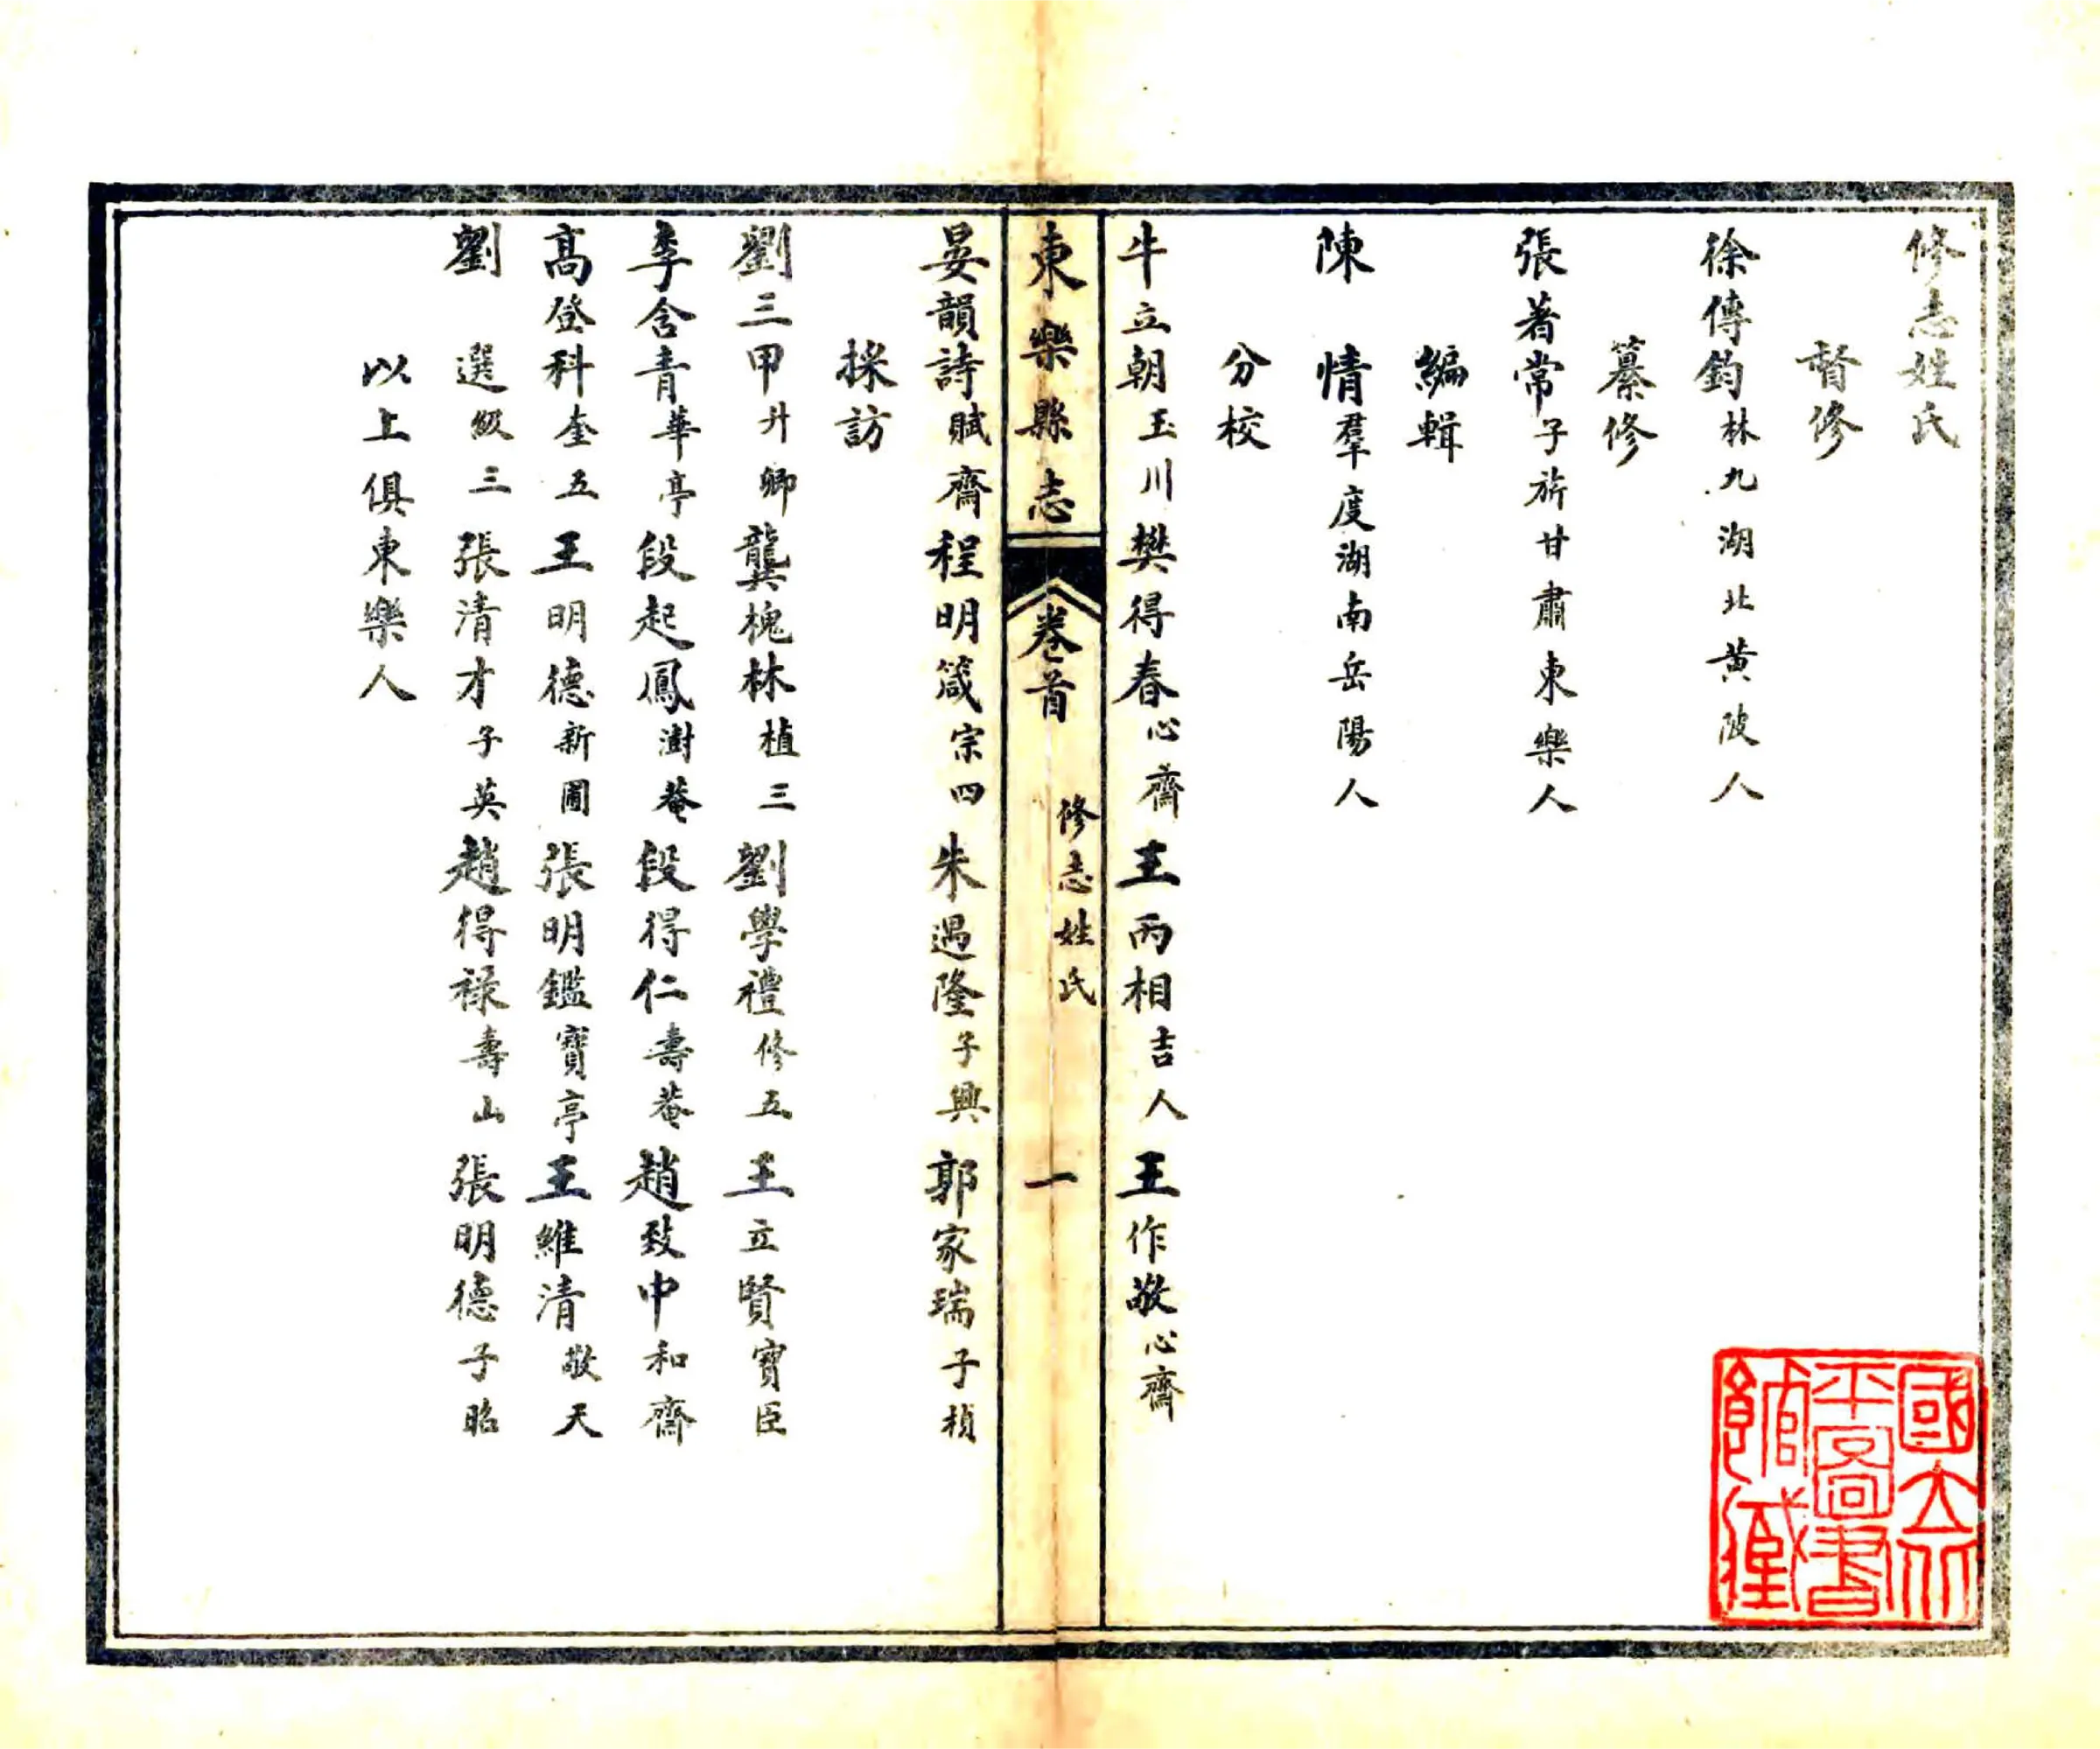 修志姓氏
督修
徐傳鈞林九湖北黄陂人
纂修
張著常子旂甘肅東樂人
編輯
陳情羣度湖南岳陽人
分校
牛立朝玉川樊得春心齋王丙相吉人王作敬心齋
東樂縣志卷首修志姓氏一
晏韻詩賦齋程明箴宗四朱遇隆子興郭家瑞子楨
採訪
劉三甲升卿龔槐林植三劉學禮修五王立賢寶臣
李含青華亭段起鳳澍菴段得仁壽菴趙致中和齋
高登科奎五王明德新圃張明鑑寶亭王維清敬天
劉選級三張清才子英趙得禄壽山張明德子昭
以上俱東樂人
國立北
平圖書
館藏